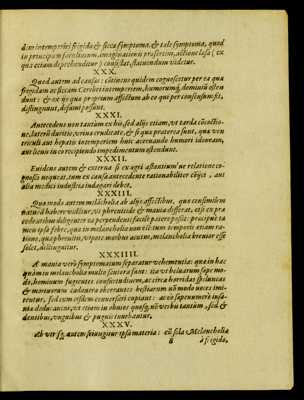 dem intemperiei frigidæ & siccæ symptoma, & tale symptoma, quod
in principum facultatum, imaginationis præsertim, actione læsa (ex
qua etiam deprehenditur) consistat, statuendum videtur.
XXX.
Quod autem ad causas: continens quidem cognoscetur per ea quæ
frigidam ac siccam Cerebri intemperiem, humorumq́; dominium osten
dunt: & ex ijs quæ proprium affectum ab eo qui per consensum fit,
distinguunt, desumi possunt.
XXXI.
Antecedens non tantum ex his, sed alijs etiam, ut tarda concoctio-
ne, lateris duritie, urinis cruditate, & si qua præterea sunt, quæ ven
triculi aut hepatis intemperiem huic acervando humori idoneam,
aut lienis in eo recipiendo impedimentum ostendunt.
XXXII.
Evidens autem & externa si ex ægri astantium ve relatione co-
gnosci nequeat, tum ex causa antecedente rationabiliter erui, aut
alia medici industria indagari debet.
XXXIII.
Quo modo autem melancholia ab alijs affectibus, qui consimilem
naturā habere vidētur, ut phrenitide & mania differat, etsi ex præ
cedentibus diligenter ea perpendenti facilè patere possit: præcipuè ta
men ipsa febre, quæ in melancholia non est: tum temporis etiam ra-
tione, quæ phrenitis, utpote morbus acutus, melancholia brevior esse
solet, distinguitur.
XXXIIII.
A mania verò symptomatum separatur vehementia: quæ in hac
quàm in melancholia multò sæviora sunt: ita ut beluarum sæpe mo-
do, hominum fugientes consuetudinem, ac circa horridas speluncas
& mortuorum cadavera oberrantes bestiarum nō modò voces imi-
tentur, sed et eorūdem cum feris capiant: ac eò sæpenumerò insa-
nia deducantur, ut etiam in obvios quosq́; nō verbis tantum, sed &
dentibus, unguibus & pugnis invehantur.
XXXV.
Ab utrisq́; autem seiungitur ipsa materia: cū sola Melancholia
B à frigido,